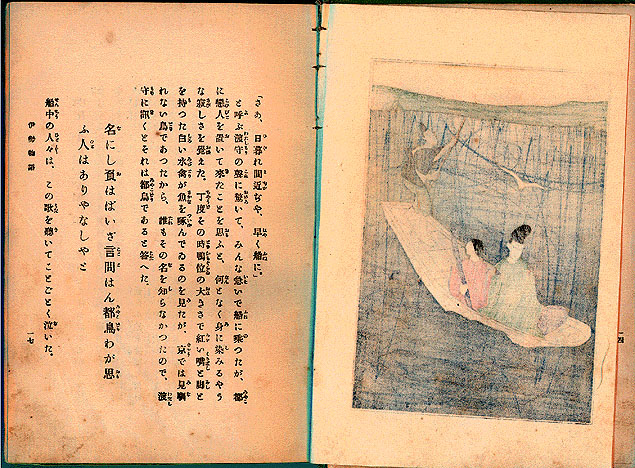 一四
「さあ、日暮れ間近ぢや、早く船に。」
と呼ぶ渡守の聲に驚いて、みんな急いで船に乘つたが、都
に戀人を置いて來たことを思ふと、何となく身に染みるやう
な寂しさを覺えた。丁度その時鴫位の大きさで紅い嘴と脚と
を持つた白い水禽が魚を啄んでゐるのを見たが、京では見馴
れない鳥であつたから、誰もその名を知らなかつたので、渡
守に聞くとそれは都鳥であると答へた。
名にし負はばいざ言問はん都鳥わが思
ふ人はありやなしやと
船中の人々は、この歌を聽いてことごとく泣いた。
伊勢物語
一七